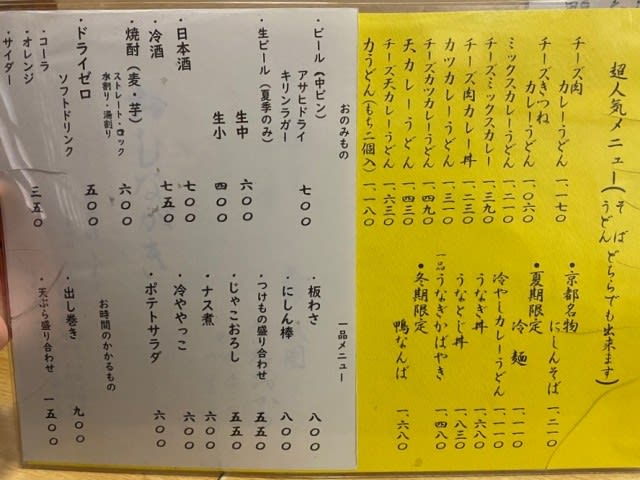 超人気メニュー(そばうどんどちらでも出来ます)
チーズ肉
カレーうどん 一、一七〇
チーズきつね
カレーうどん 一、〇六〇
ミックスカレーうどん 一、二一〇
チーズミックスカレー 一、三九〇
チーズ肉カレー丼 一、二三〇
カツカレーうどん 一、三一〇
チーズカツカレーうどん 一、四九〇
天カレーうどん 一、四三〇
チーズ天カレーうどん 一、六三〇
力うどん(もち二個入) 一、一八〇
・京都名物
にしんそば 一、二一〇
・夏期限定
冷麺 一、一一〇
冷やしカレーうどん 一、一一〇
うなぎ丼 一、六八〇
うなとじ丼 一、八三〇
一品うなぎかばやき 一、四八〇
・冬期限定
鴨なんば 一、六八〇
おのみもの
・ビール(中ビン) 七〇〇
アサヒドライ
キリンラガー
・生ビール(夏季のみ)
生中 六〇〇
生小 四〇〇
・日本酒 七〇〇
・冷酒 七五〇
・焼酎(麦・芋) 六〇〇
ストレート・ロック
水割り・湯割り
・ドライゼロ 五〇〇
ソフトドリンク
・コーラ 三五〇
・オレンジ
・サイダー
一品メニュー
・板わさ 八〇〇
・にしん棒 八〇〇
・つけもの盛り合わせ 五五〇
・じゃこおろし 五五〇
・ナス煮 六〇〇
・冷ややっこ 六〇〇
・ポテトサラダ 六〇〇
お時間のかかるもの
・出し巻き 九〇〇
・天ぷら盛り合わせ 一五〇〇